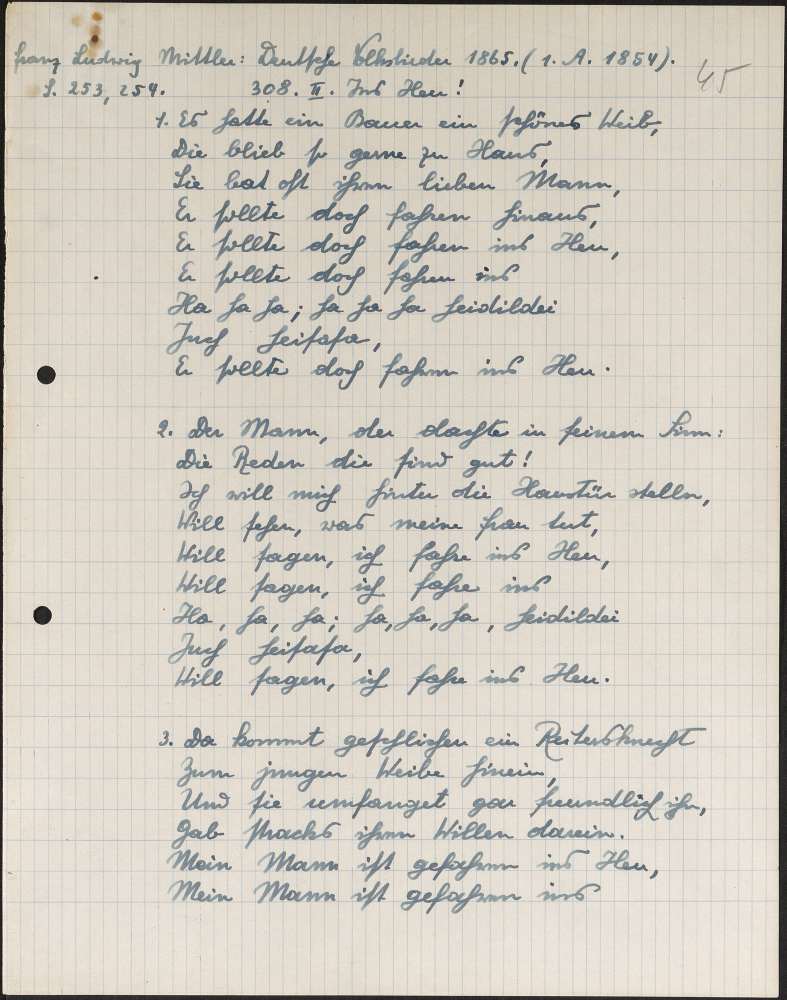 Franz Ludwig Mittler: Deutsche Volkslieder 1865. (1. A. 1854).
45
S. 253, 254. 308. II. Ins Heu!
1. Es hatte ein Bauer ein schönes Weib,
Die blieb so gerne zu Haus,
Sie bat oft ihren lieben Mann,
Er sollte doch fahren hinaus,
Er sollte doch fahren ins Heu,
Er sollte doch fahren ins
Ha ha ha; ha ha ha heidildei
Juch heisasa,
Er sollte doch fahren ins Heu.
2. Der Mann, der dachte in seinem Sinn:
Die Reden die sind gut!
Ich will mich hinter die Haustür stellen,
Will sehen, was meine Frau tut,
Will sagen, ich fahre ins Heu,
Will sagen, ich fahre ins
Ha, ha, ha; ha, ha, ha, heidildei
Juch heisasa,
Will sagen, ich fahre ins Heu.
3. Da kommt geschlichen ein Reitersknecht
Zum jungen Weibe hinein,
Und sie umfanget gar freundlich ihn,
Gab stracks ihren Willen darein.
Mein Mann ist gefahren ins Heu,
Mein Mann ist gefahren ins